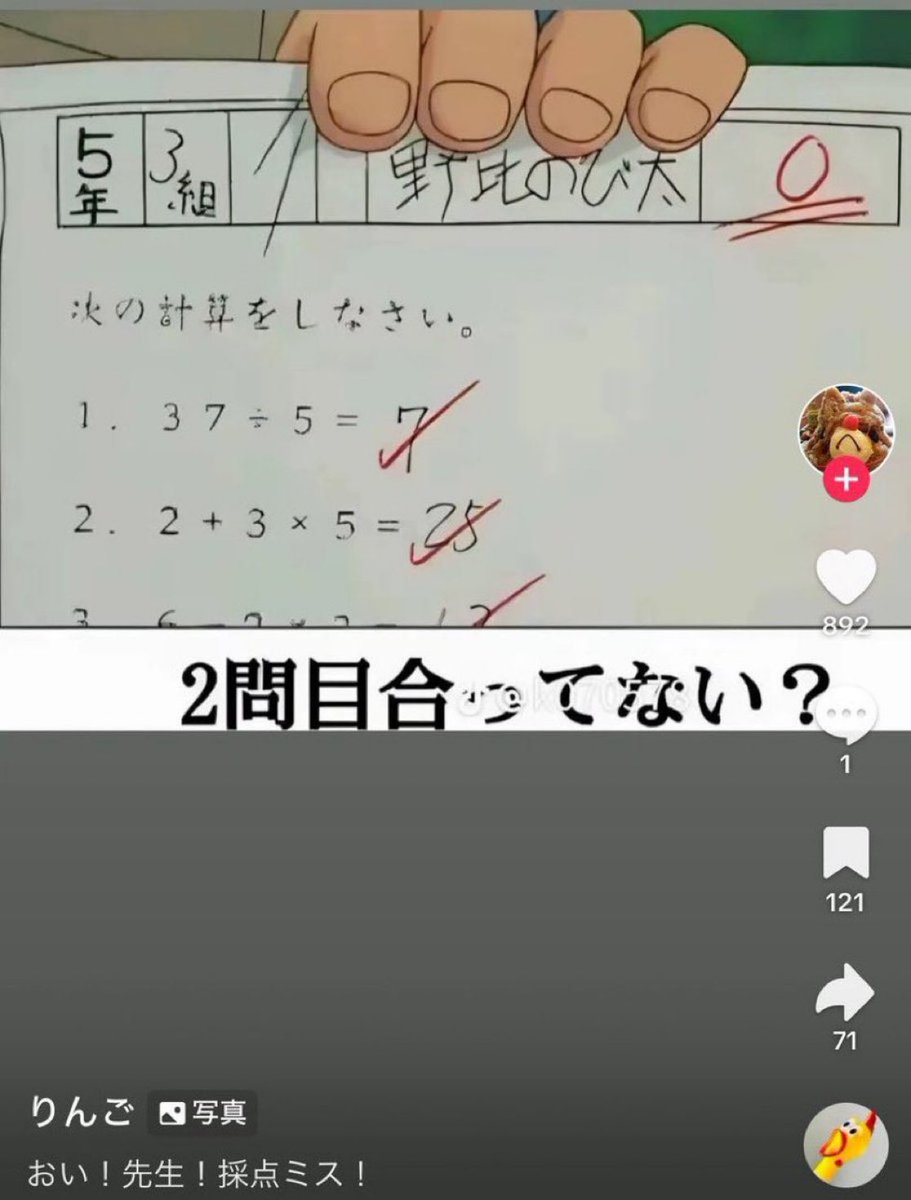 5年 3組 野比のび太 0
次の計算をしなさい。
1. 37÷5=7
2. 2+3×5=25
2問目合ってない？
892
1
121
71
りんご 写真
おい！先生！採点ミス！